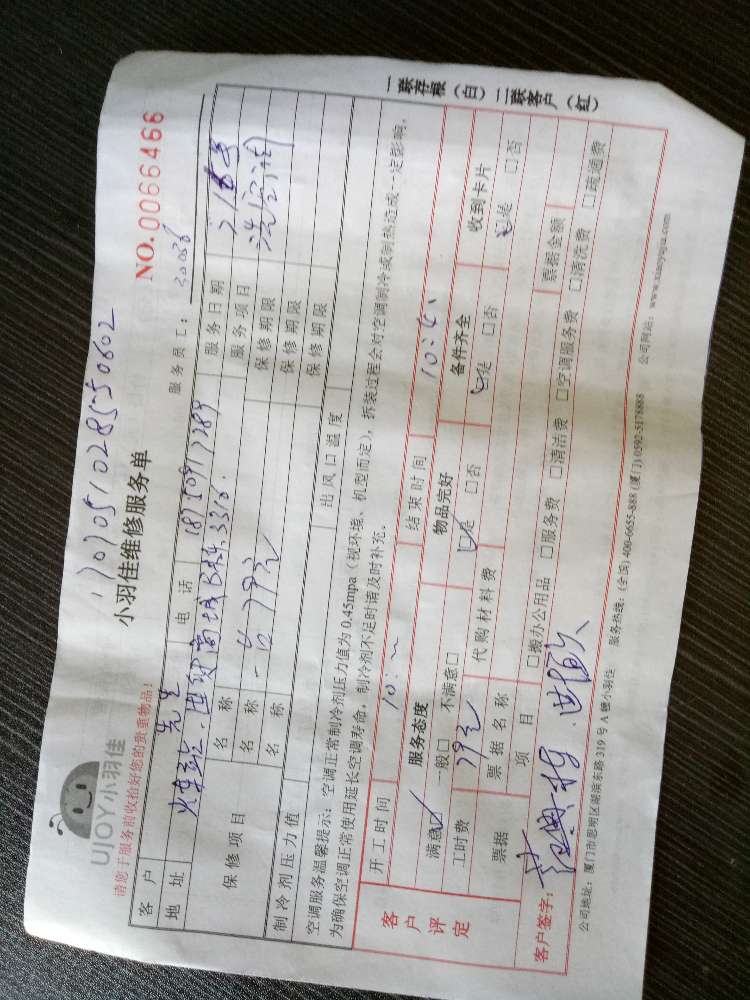 17070510285550602
UJOY小羽佳
小羽佳维修服务单
NO.0066466
请您于服务前收拾好您的贵重物品!
服务员工: 30036
客户 先生 电话 服务日期
地址 火车站 世贸商城B栋3316. 服务项目
保修项目 名称 一台79元 保修期限
名称 保修期限
名称 保修期限
制冷剂压力值 出风口温度
空调服务温馨提示: 空调正常制冷剂压力值为 0.45mpa (视环境、机型而定), 拆装过程会对空调制冷或制热造成一定影响,
为确保空调正常使用延长空调寿命, 制冷剂不足时请及时补充。
一联存根(白) 二联客户(红)
客户评定
开工时间 10: 结束时间 10:
服务态度 物品完好 备件齐全 收到卡片
满意□ 一般□ 不满意□ □是 □否 □是 □否 □是 □否
工时费 79元 代购材料费
票据 票据名称 票据金额
项目 □搬办公用品 □服务费 □清洁费 □空调服务费 □清洗费 □疏通费
客户签字:
公司地址: 厦门市思明区湖滨东路 319 号 A 幢小羽佳 服务热线: (全国) 400-6655-888 (厦门) 0592-5178888 公司网站: www.xiaoyujia.com